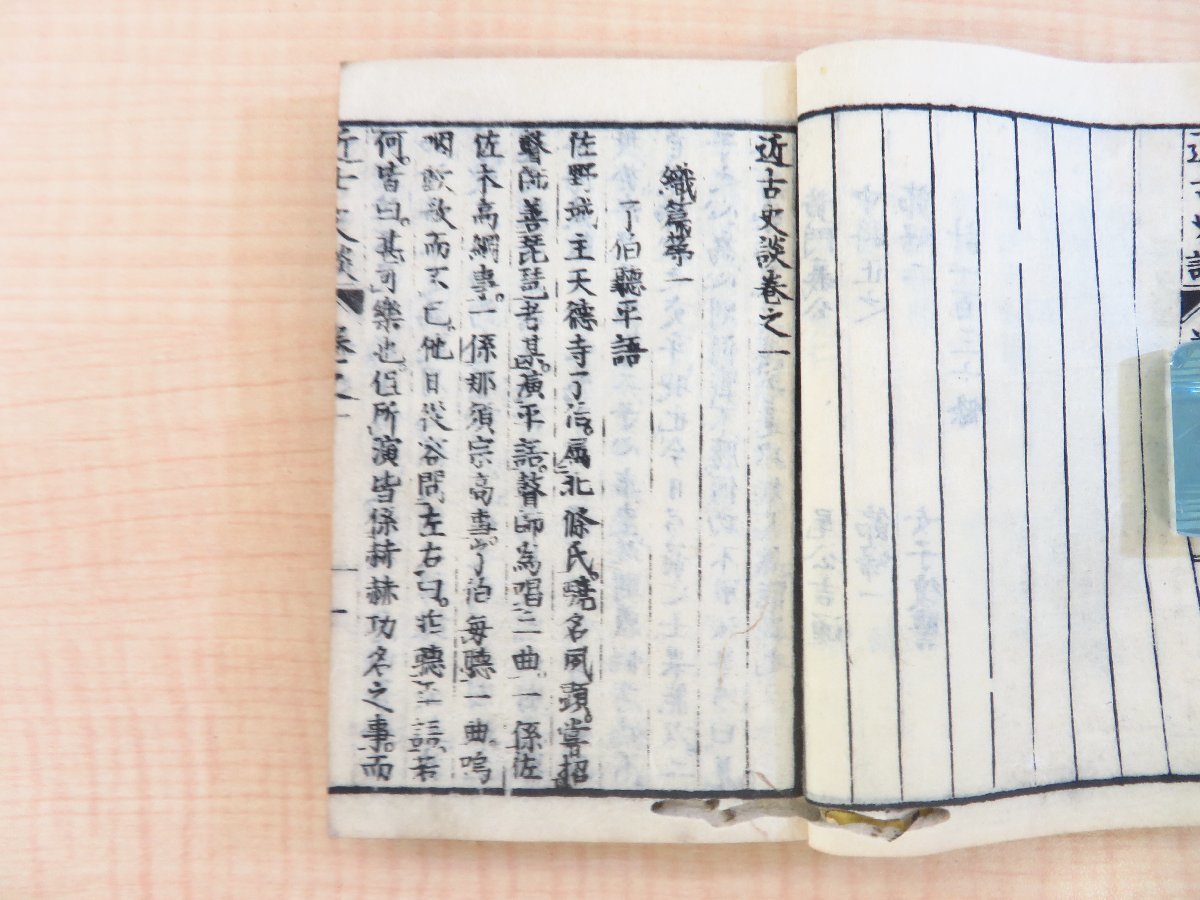 近古史談卷之一
織篇第一
了伯聽平語
佐野城主天德寺了泊。屬北條氏。驍名夙顯。嘗招
瞽師善琵琶者某。演平語。瞽師爲唱二曲。一係佐
佐木高綱事。一係那須宗高事。了泊每聽一曲。嗚
咽歔欷而不已。他日從容問左右曰。昨聽平語。若
何。皆曰。甚可樂也。但所演皆係赫赫功名之事。而
近古史談 卷之一 一